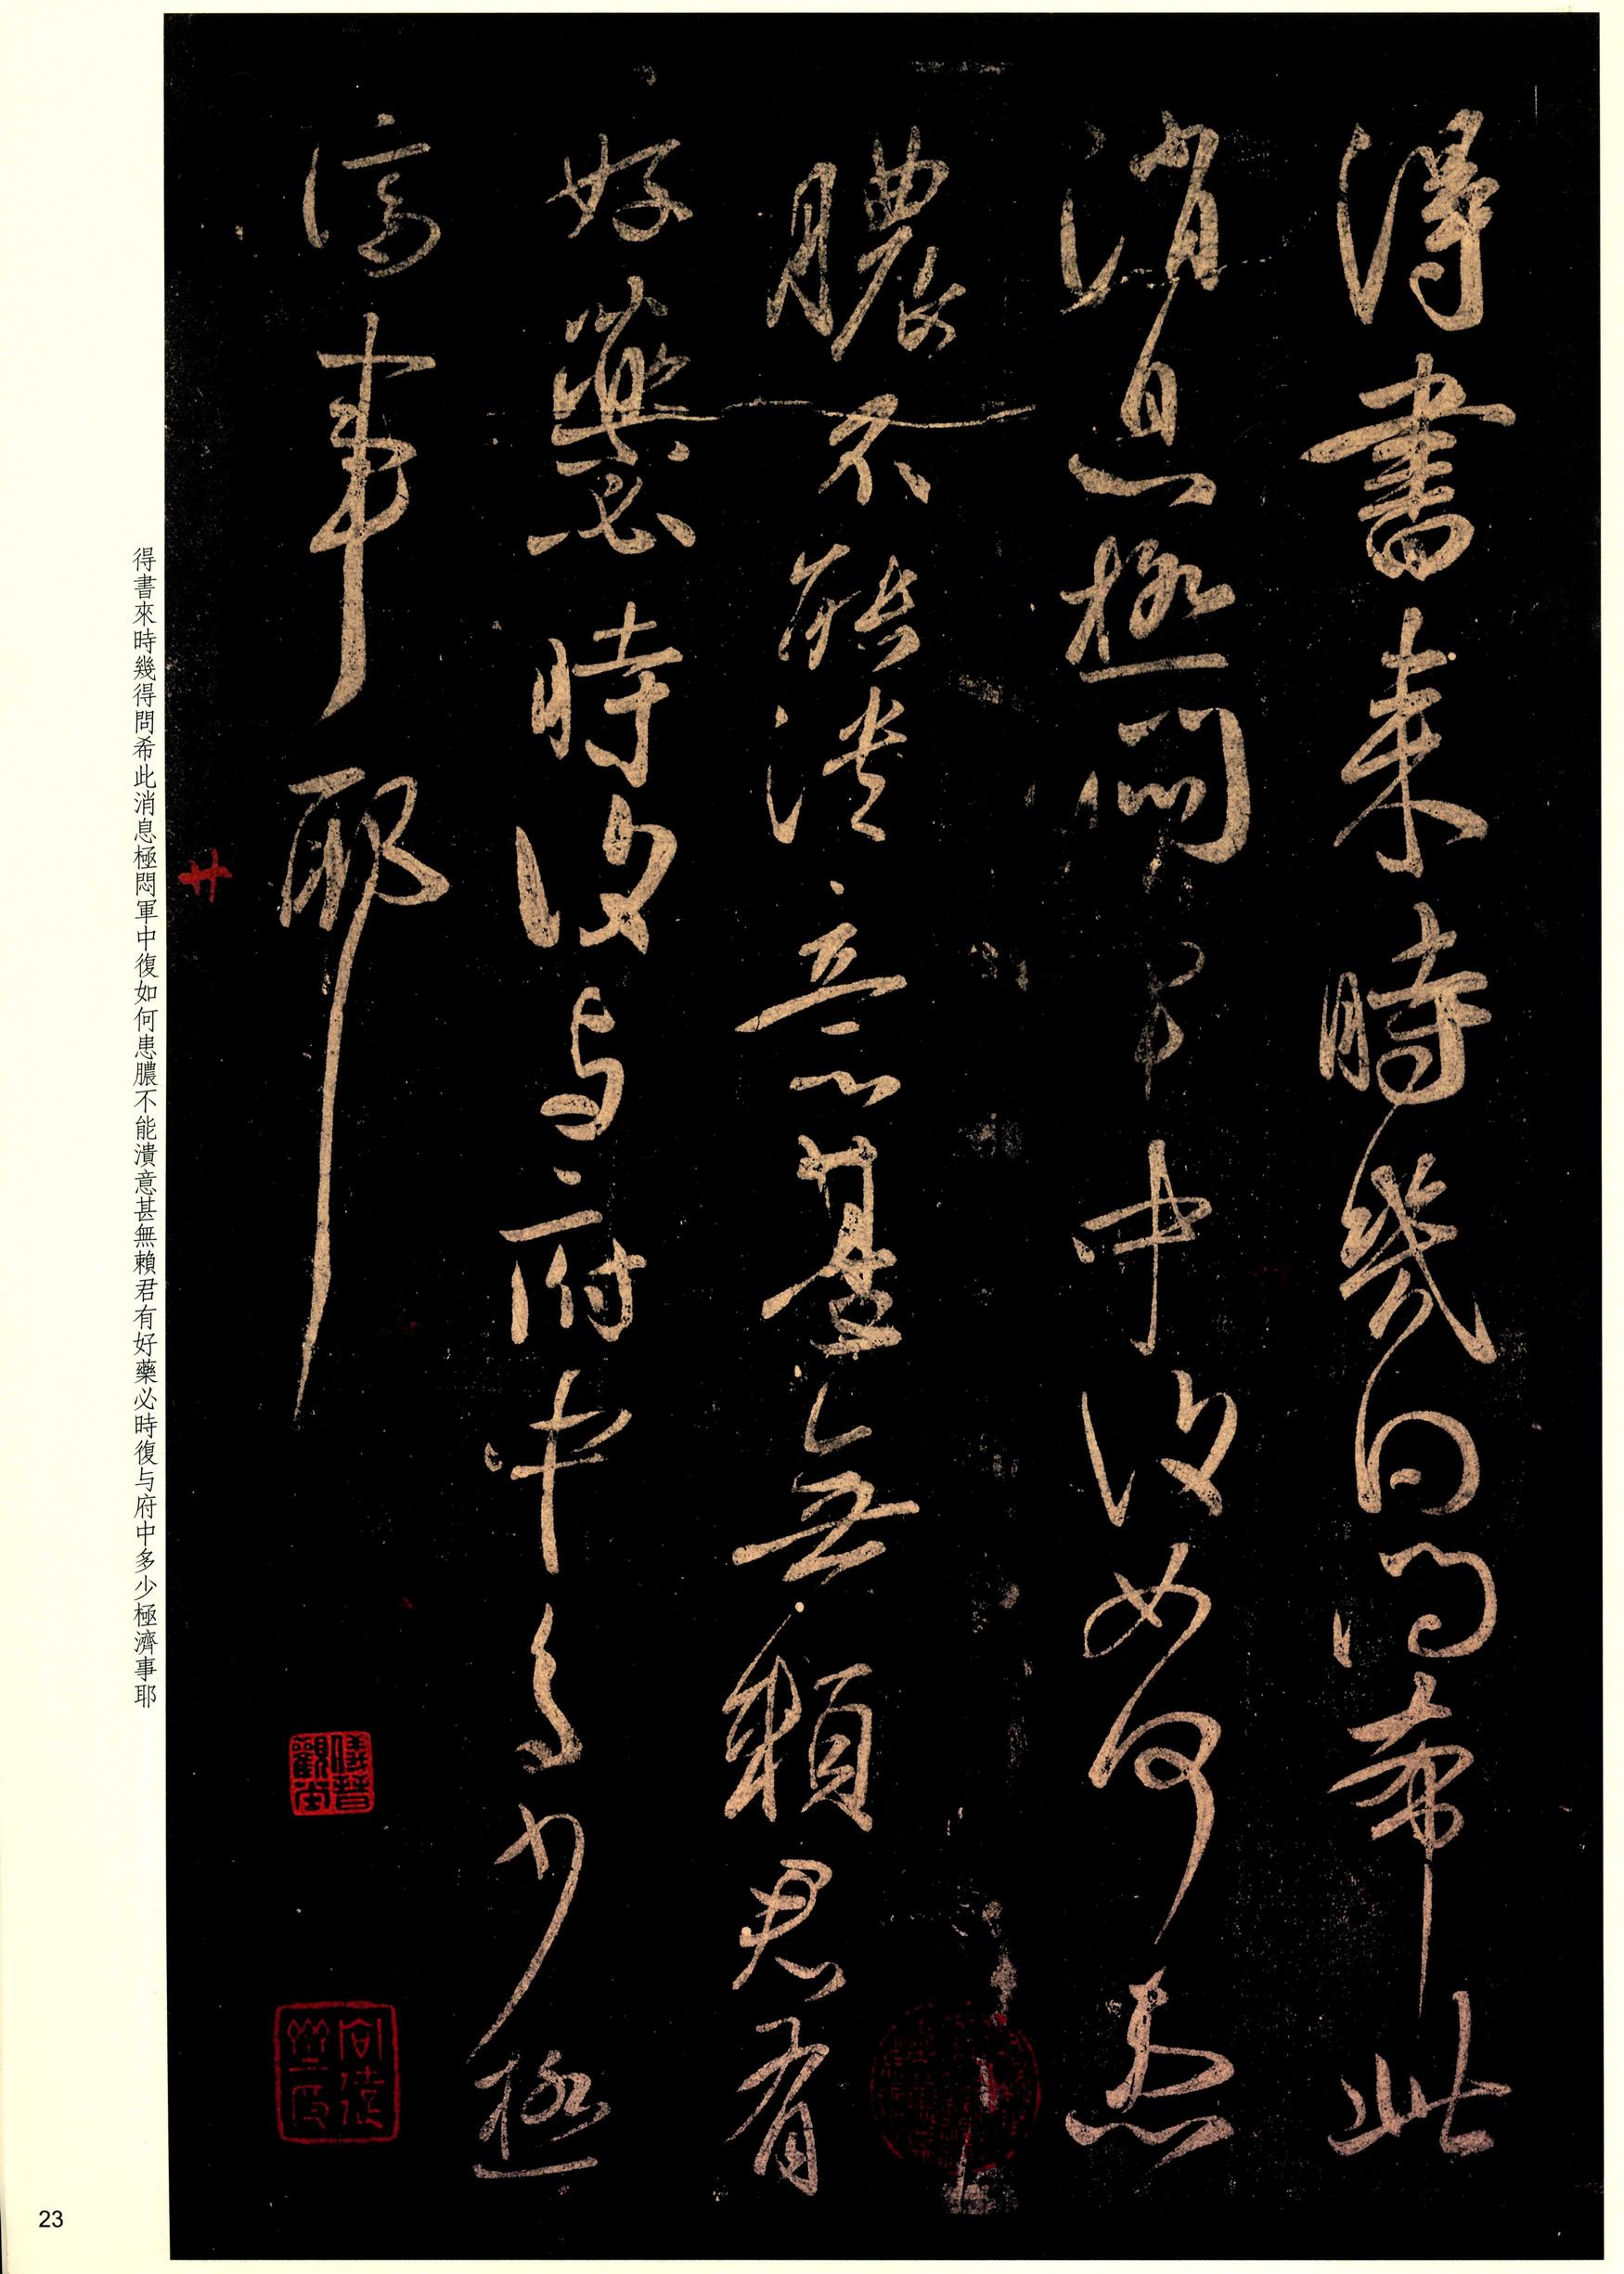 得書來時幾日問希此
消息極悶軍中復如何患
膿不能潰意甚無賴君有
好藥必時復与府中多少極
濟事耶
廿
儀晉觀堂
得書來時幾得問希此消息極悶軍中復如何患膿不能潰意甚無賴君有好藥必時復与府中多少極濟事耶
23